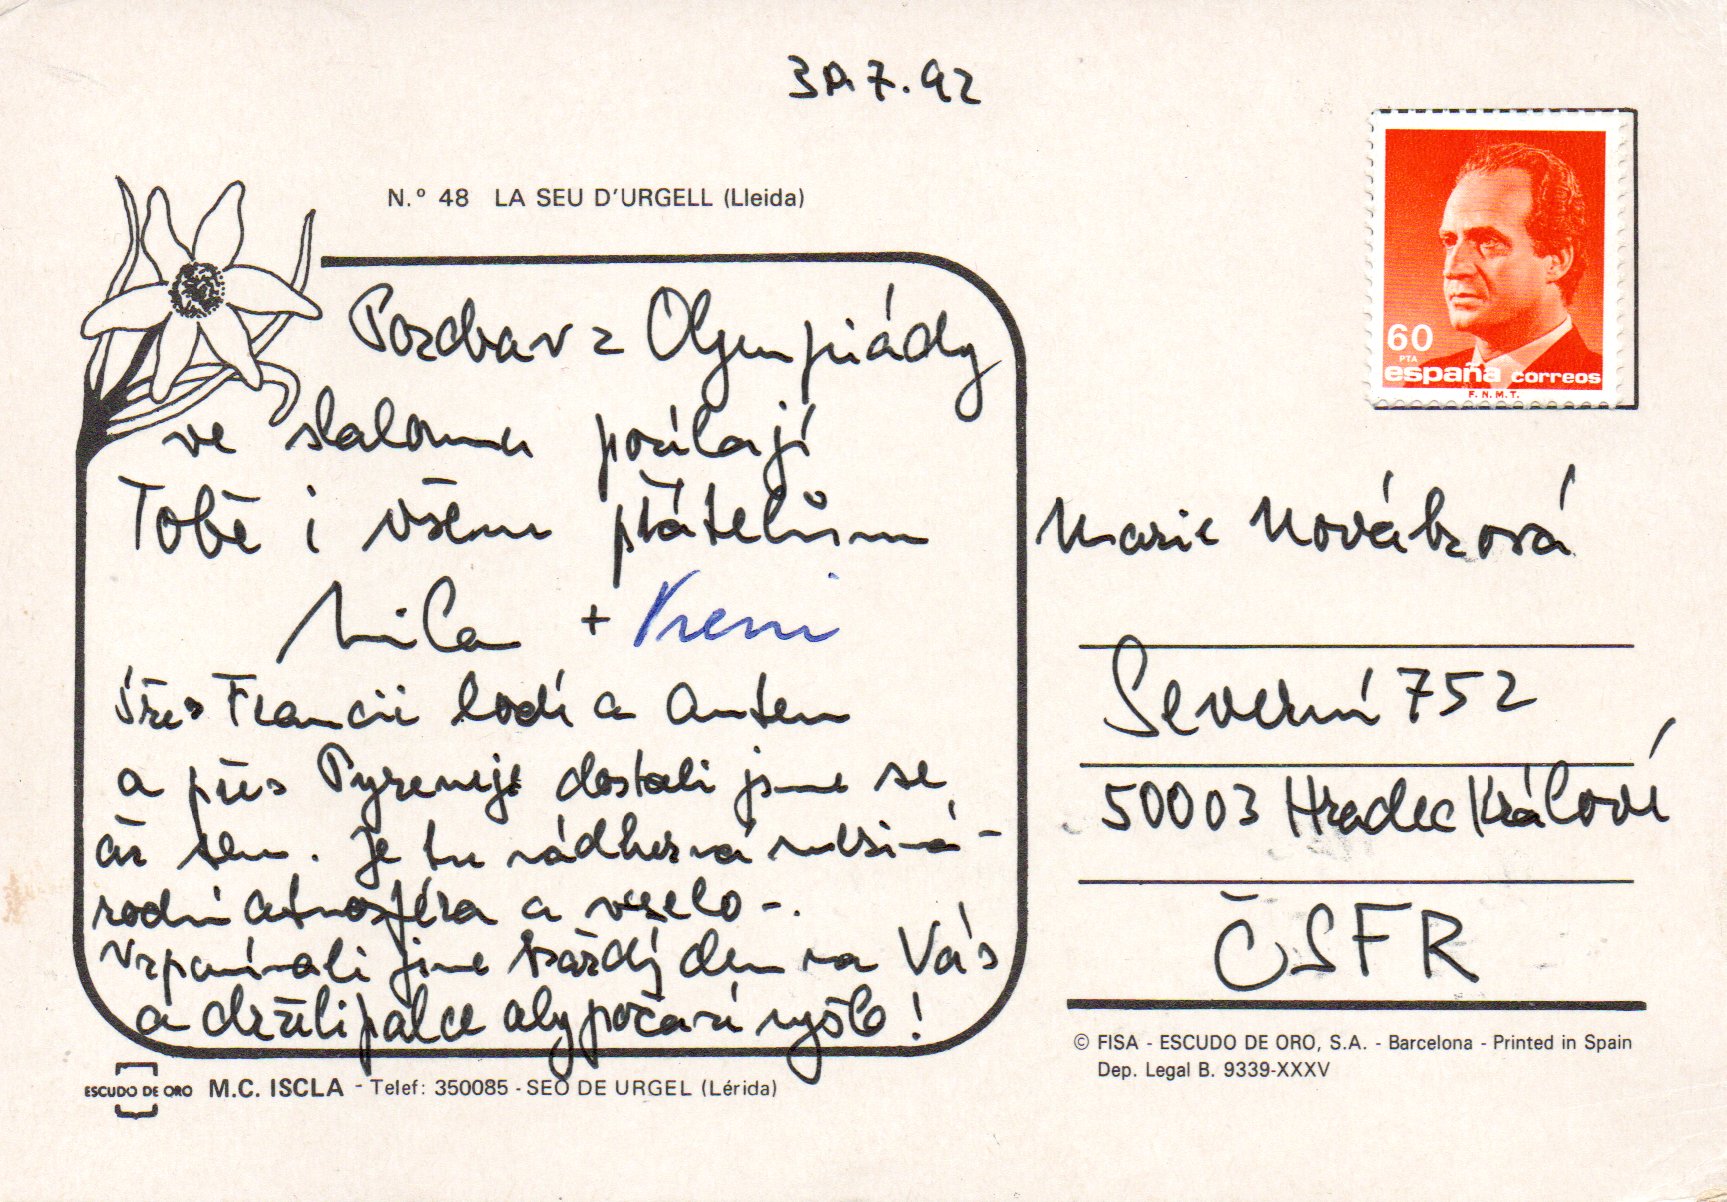 30.7.92
N.º 48 LA SEU D'URGELL (Lleida)
Pozdrav z Olympiády
ve slalomu posílají
Tobě i všem přátelům
Míla + Vreni
Přes Francii lodí a autem
a přes Pyreneje dostali jsme se
až sem. Je tu nádherná meziná-
rodní atmosféra a veselo -.
Vzpomínali jsme každý den na Vás
a drželi palce aby počasí vyšlo!
ESCUDO DE ORO M.C. ISCLA - Telef: 350085 - SEO DE URGEL (Lérida)
60
PTA
españa correos
F.N.M.T.
Marie Nováková
Severní 752
50003 Hradec Králové
ČSFR
© FISA - ESCUDO DE ORO, S.A. - Barcelona - Printed in Spain
Dep. Legal B. 9339-XXXV